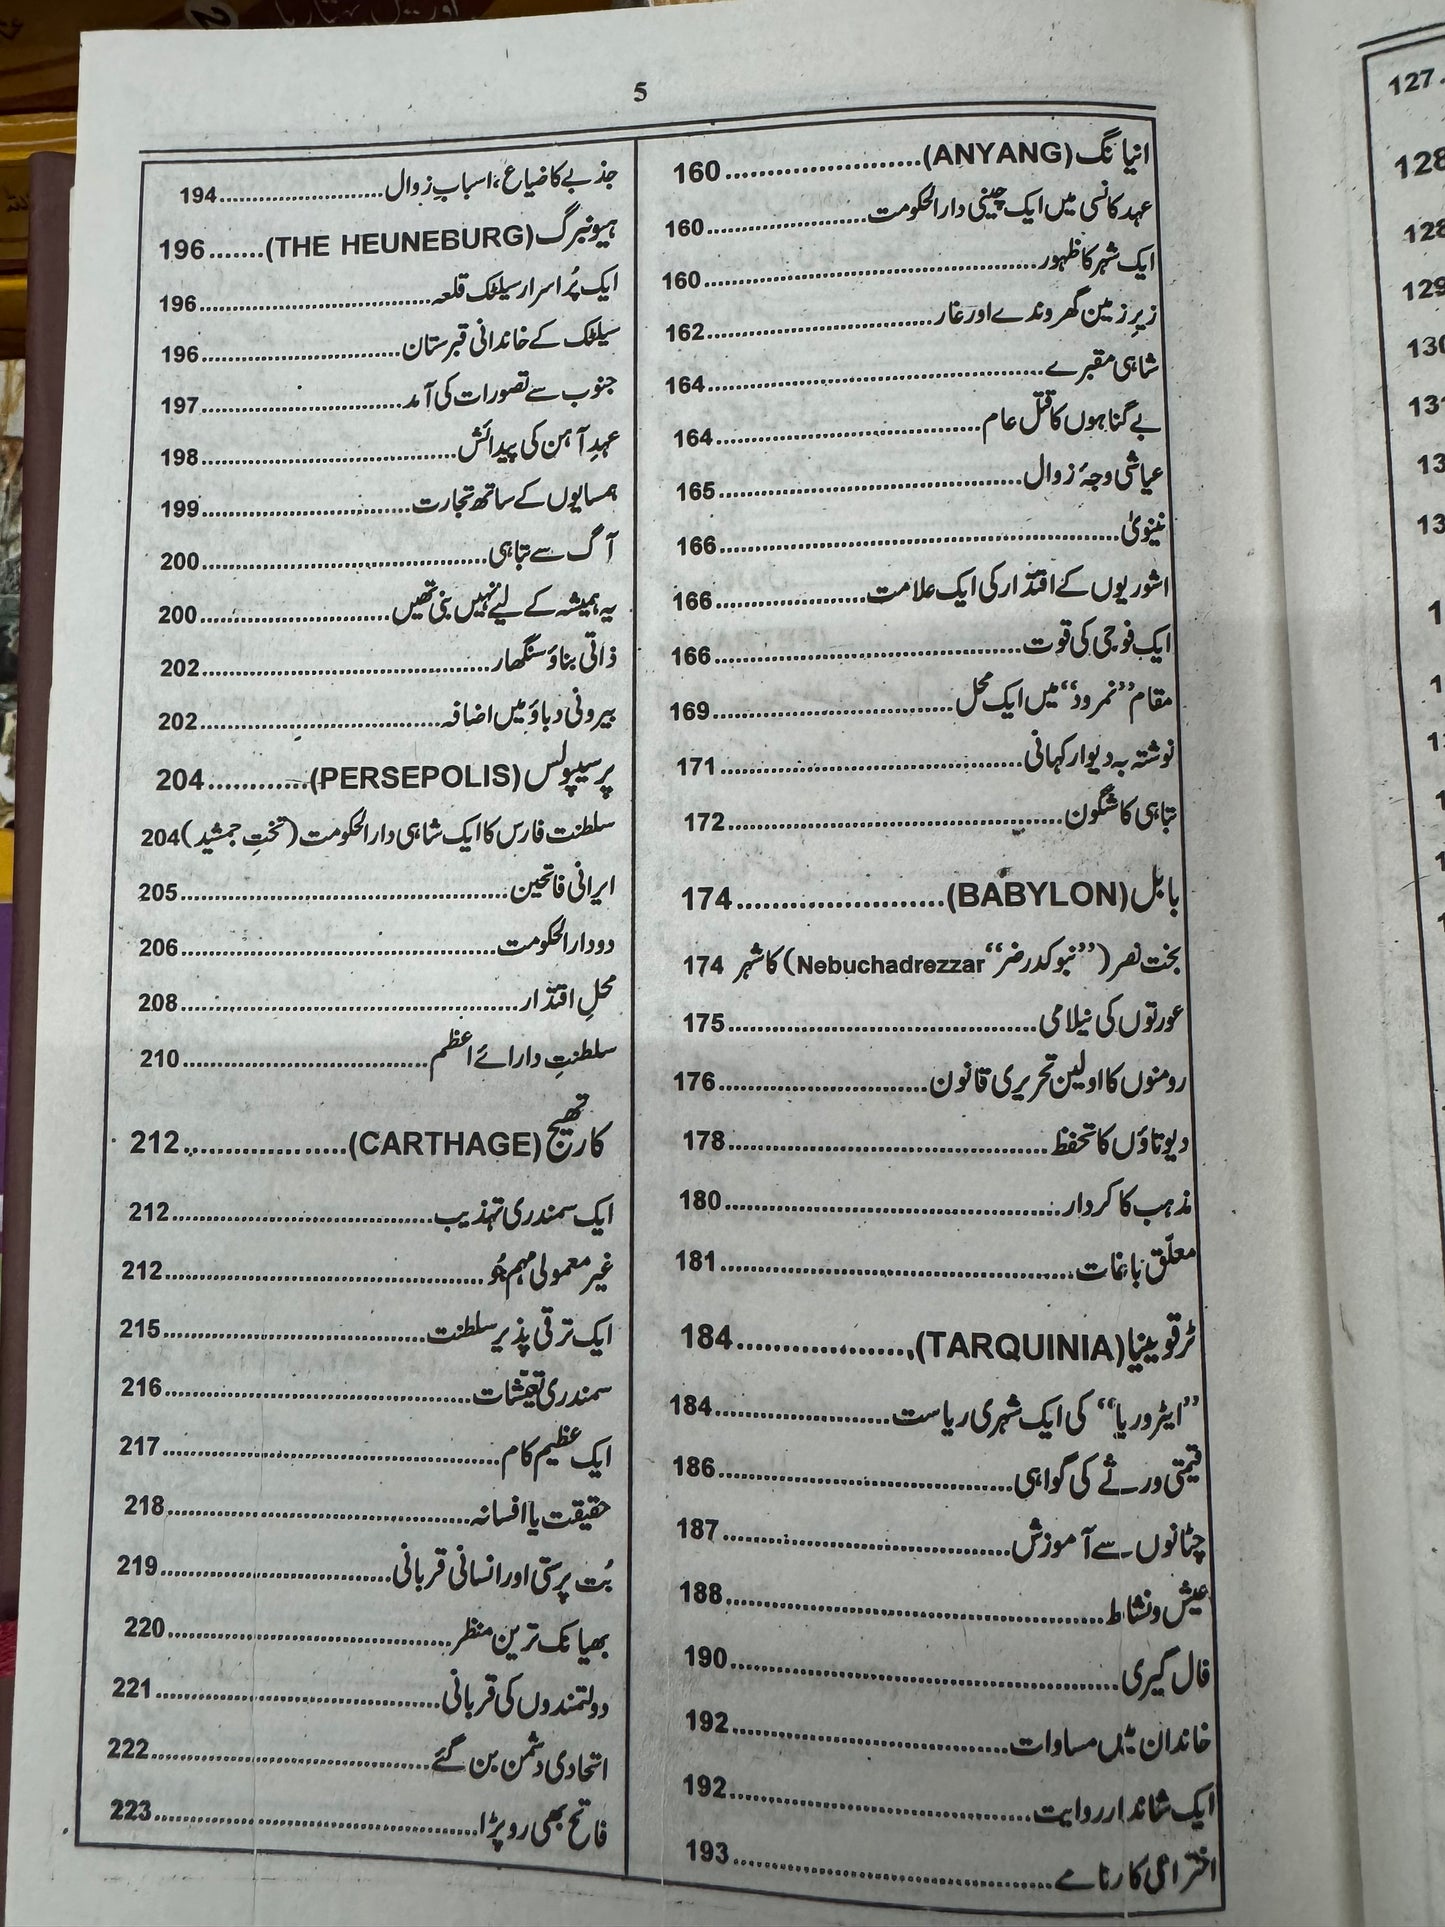 5
انیانگ (ANYANG)......................160
عہد کانسی میں ایک چینی دارالحکومت......................160
ایک شہر کا ظہور......................160
زیرِ زمین گھروندے اور غار......................162
شاہی مقبرے......................164
بے گناہوں کا قتل عام......................164
عیاشی وجۂ زوال......................165
نینویٰ......................166
اشوریوں کے اقتدار کی ایک علامت......................166
ایک فوجی کی قوت......................166
مقام ”نمرود“ میں ایک محل......................169
نوشتہ بہ دیوار کہانی......................171
تباہی کا شگون......................172
بابل (BABYLON)......................174
بخت نصر (”نبوکدرضر“ Nebuchadrezzar) کا شہر 174
عورتوں کی نیلامی......................175
رومنوں کا اولین تحریری قانون......................176
دیوتاؤں کا تحفظ......................178
مذہب کا کردار......................180
معلّق باغات......................181
ٹرقوینیا (TARQUINIA)......................184
”ایٹروریا“ کی ایک شہری ریاست......................184
قیمتی ورثے کی گواہی......................186
چٹانوں سے آموزش......................187
عیش و نشاط......................188
فال گیری......................190
خاندان میں مساوات......................192
ایک شاندار روایت......................192
اختراعی کارنامے......................193
جذبے کا ضیاع، اسبابِ زوال......................194
ہیونبرگ (THE HEUNEBURG).......196
ایک پُر اسرار سیلٹک قلعہ......................196
سیلٹک کے خاندانی قبرستان......................196
جنوب سے تصورات کی آمد......................197
عہدِ آہن کی پیدائش......................198
ہمسایوں کے ساتھ تجارت......................199
آگ سے تباہی......................200
یہ ہمیشہ کے لیے نہیں بنی تھیں......................200
ذاتی بناؤ سنگھار......................202
بیرونی دباؤ میں اضافہ......................202
پرسیپولس (PERSEPOLIS)............204
سلطنت فارس کا ایک شاہی دارالحکومت (تختِ جمشید) 204
ایرانی فاتحین......................205
دو دارالحکومت......................206
محلِ اقتدار......................208
سلطنتِ دارائے اعظم......................210
کارتھیج (CARTHAGE)..................212
ایک سمندری تہذیب......................212
غیر معمولی مہم جُو......................212
ایک ترقی پذیر سلطنت......................215
سمندری تعیّشات......................216
ایک عظیم کام......................217
حقیقت یا افسانہ......................218
بُت پرستی اور انسانی قربانی......................219
بھیانک ترین منظر......................220
دولتمندوں کی قربانی......................221
اتحادی دشمن بن گئے......................222
فاتح بھی رو پڑا......................223
127
128
128
129
130